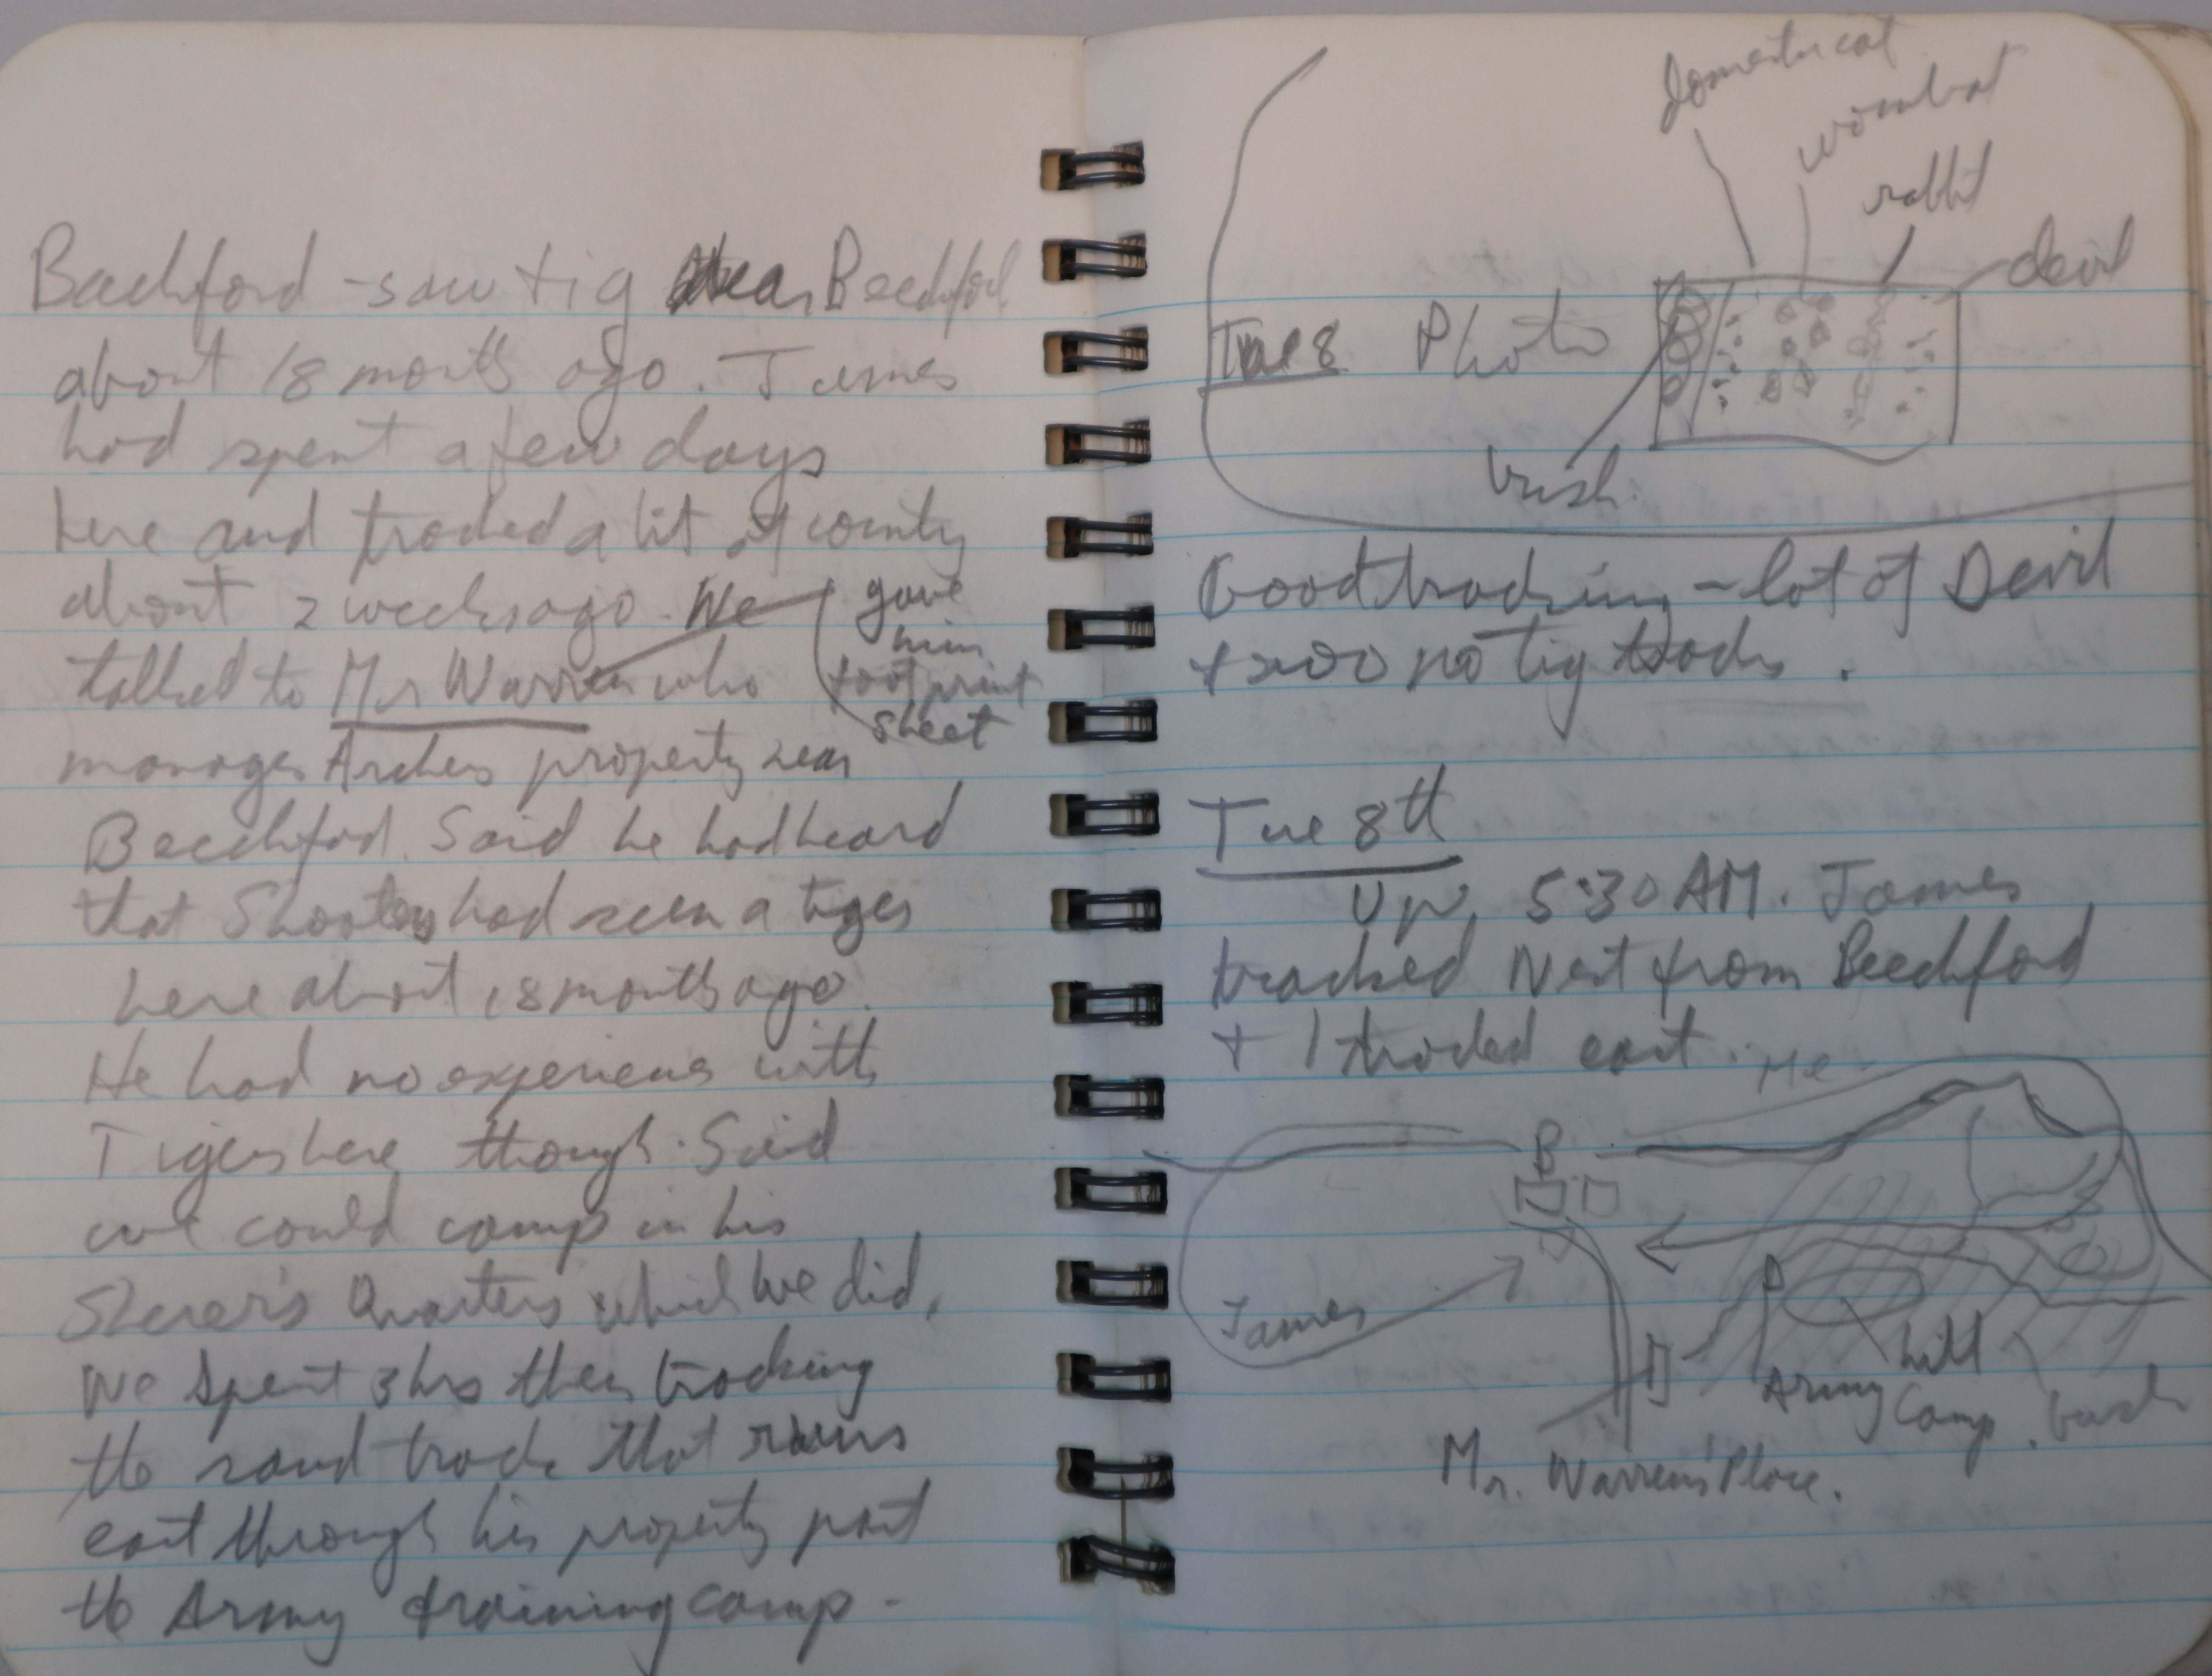 Beechford - saw tig near Beechford
about 18 months ago. James
had spent a few days
here and tracked a bit of country
about 2 weeks ago. We
talked to Mr Warren who
gave
him
footprint
sheet
manages Archers property near
Beechford. Said he had heard
that Shooters had seen a tiger
here about 18 months ago.
He had no experience with
Tigers here though. Said
we could camp in his
Sherer's Quarters which we did.
We spent 3 hrs then tracking
the sand track that runs
east through his property past
the Army training camp -
domestic cat
wombat
rabbit
devil
Tue 8 Photo
bush
Good tracking - lot of Devil
+ roo no tig tracks.
Tue 8th
Up 5:30 AM. James
tracked West from Beechford
+ I tracked east.
Me
B
James
hill
Army Camp
bush
Mr. Warren's Place.